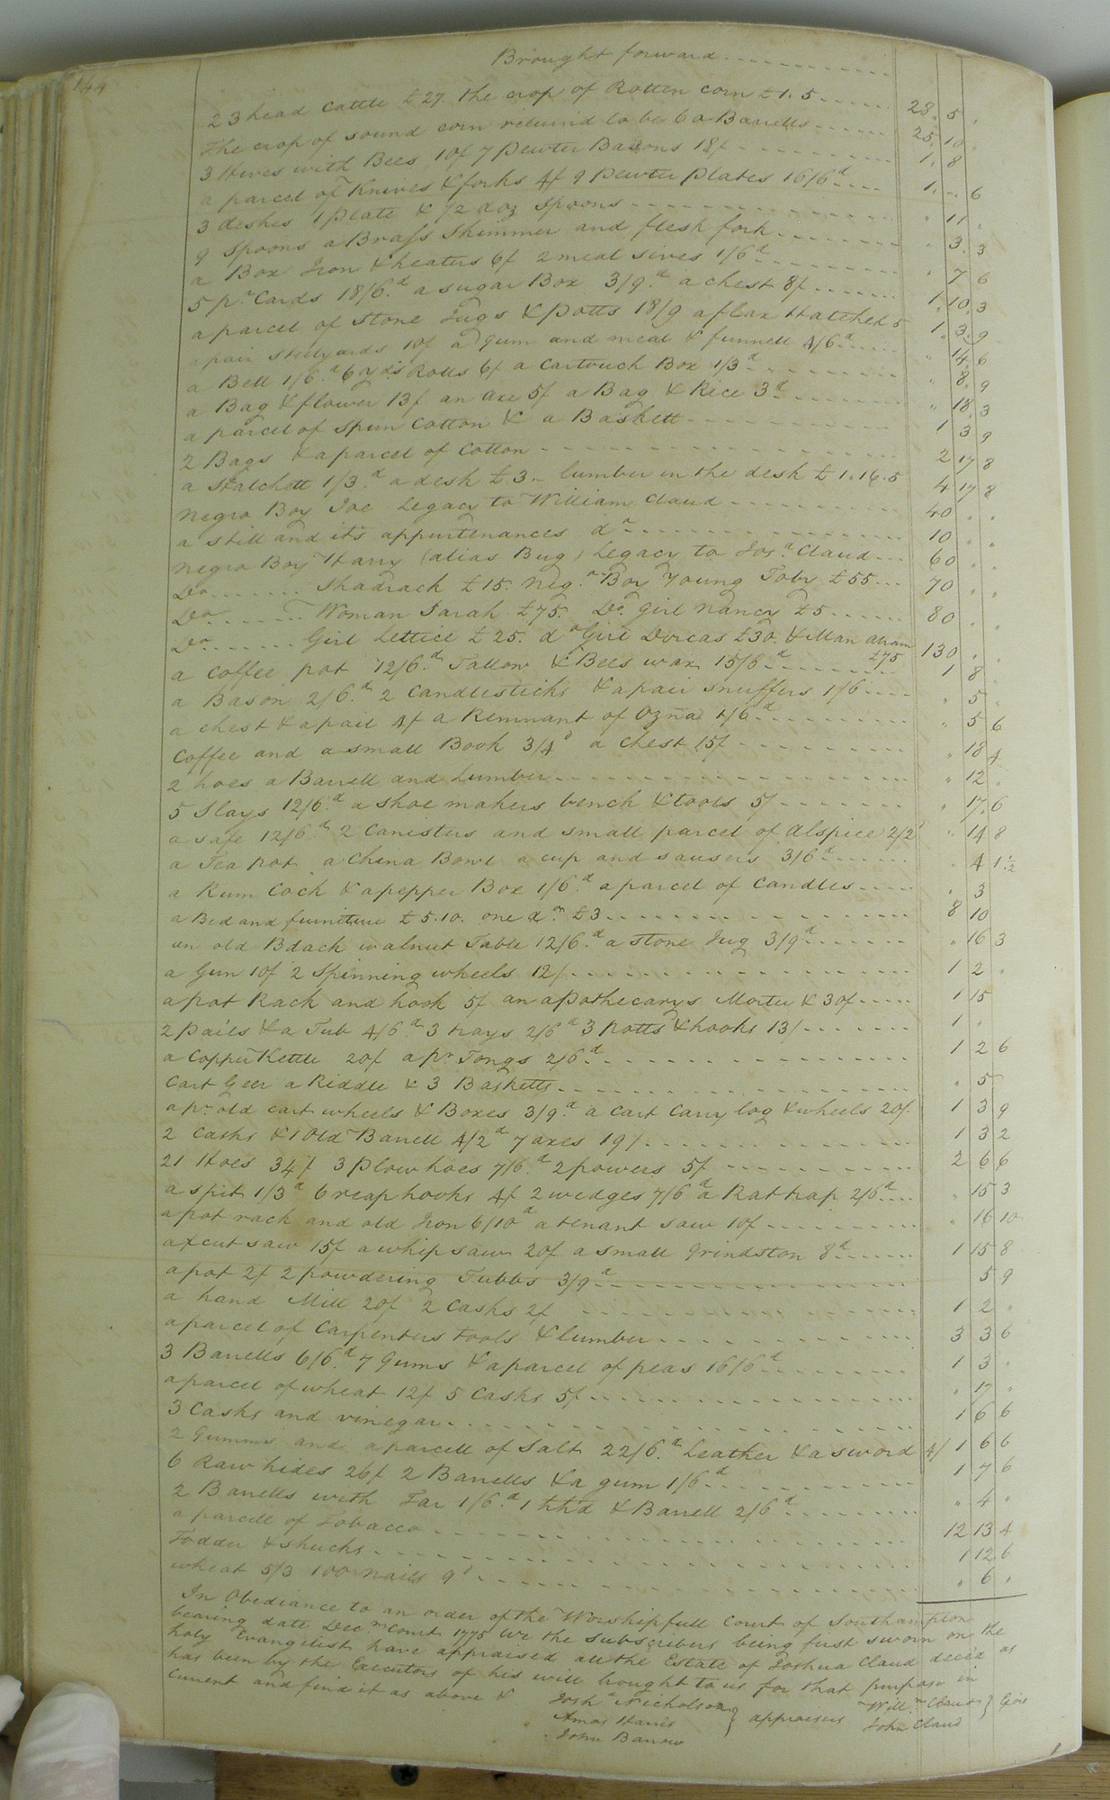 144
Brought forward
23 head Cattle £27. The crop of Rotten corn £1.5 28. 5 .
The crop of sound corn to be 60 Barrells 25. 10 .
3 Hives with Bees 10/ 7 Pewter Basons 18/ 1. 8
a parcel of Knives & forks 4/ 9 Pewter plates 16/6d 1. .. 6
3 dishes 1 plate & 1/2 doz spoons . 11 .
9 Spoons a Brass Skimmer and flesh fork . 3. 3
a Box Iron & heaters 6/ 2 meal sives 1/6d . 7 6
5 pr. Cards 18/6d a sugar Box 3/9d a chest 8/ 1. 10. 3
a parcel of Stone Jugs & Potts 18/9 a flax Hatchel 5 1. 3. 9
a pair stillyards 10/ a Gum and meal & funnell 4/6d . 14. 6
a Bell 1/6d 6 yds Rolls 6/ a Cartouch Box 1/3d . 8. 9
a Bag & flower 13/ an axe 5/ a Bag & Rice 3d . 18. 3
a parcel of spun Cotton & a Baskett 1 3 9
2 Bags & a parcel of Cotton 2 17 8
a Hatchett 1/3d a desk £3.. lumber in the desk £1.16.5 4 17 8
Negro Boy Joe Legacy to William Claud 40 . .
a still and its appurtenances do 10 . .
Negro Boy Harry (alias Bug) Legacy to Josa. Claud 60 . .
Do Shadrack £15. Nego. Boy Young Toby £55 70 . .
Do Woman Sarah £75. Do. girl Nancy £5 80 . .
Do Girl Lettice £25. do Girl Dorcas £30. & Man Abram £75 130 . .
a Coffee pot 12/6d Tallow & Bees wax 15/6d 1 8 .
a Bason 2/6d 2 Candlesticks & a pair snuffers 1/6 . 5 .
a chest & a pail 4/ a Remnant of Ozna 1/6d . 5 6
Coffee and a small Book 3/4d a Chest 15/ . 18 4
2 hoes a Barrell and Lumber . 12 .
5 Slays 12/6d a shoe makers bench & tools 5/ . 17. 6
a safe 12/6d 2 Canisters and small parcel of Alspice 2/2 . 14 8
a Tea pot a China Bowl a cup and sausers 3/6d . 4 1 1/2
a Rum Cock & a pepper Box 1/6d a parcel of Candles . 3
a Bed and furniture £5.10. one do. £3 8 10
an old Bdack walnut Table 12/6d a stone Jug 3/9d . 16 3
a Gun 10/ 2 Spinning wheels 12/ 1 2 .
a pot Rack and hook 5/ an apothecarys Morter & 30/ 1 15
2 pails & a Tub 4/6d 3 trays 2/6d 3 Potts & hooks 13/ 1 .
a Copper Kettle 20/ a pr Tongs 2/6d 1 2 6
Cart Geer a Riddle & 3 Basketts . 5
a pr. old cart wheels & Boxes 3/9d a Cart Carry log & wheels 20/ 1 3 9
2 Casks & 1 Old Barrell 4/2d 7 axes 19/ 1 3 2
21 Hoes 34/ 3 Plow hoes 7/6d 2 powers 5/ 2 6 6
a spit 1/3d 6 reap hooks 4/ 2 wedges 7/6d a Rat trap 2/6d . 15 3
a pot rack and old Iron 6/10d a tenant saw 10/ . 16 10
a x cut saw 15/ a whip saw 20/ a small Grindston 8d 1 15 8
a pot 2/ 2 powdering Tubbs 3/9d 5 9
a hand Mill 20/ 2 Casks 2/ 1 2 .
a parcel of Carpenters tools & lumber 3 3 6
3 Barrells 6/6d 7 Gums & a parcel of peas 16/6d 1 3 .
a parcel of wheat 12/ 5 Casks 5/ . 17 .
3 Casks and vinegar 1 6 6
2 Gumms and a parcell of Salt 22/6d Leather & a sword 4/ 1 6 6
6 Raw hides 26/ 2 Barrells & a gum 1/6d 1 7 6
2 Barrells with Tar 1/6d 1 hhd & Barrell 2/6d . 4 .
a parcell of Tobacco 12 13 4
Fodder & shucks 1 12 6
wheat 5/3 100 nails 9d . 6 .
In Obediance to an order of the Worshipfull Court of Southampton
bearing date Decm. Court 1775 We the subscribers being first sworn on the
holy Evangelist have appraised all the Estate of Joshua Claud deced as
has been by the Executors of his will brought to us for that purpose in
Current and find it as above &
Josha. Nicholson
Amos Harris
John Barrow
} appraisers
Willm. Claud
John Claud
}